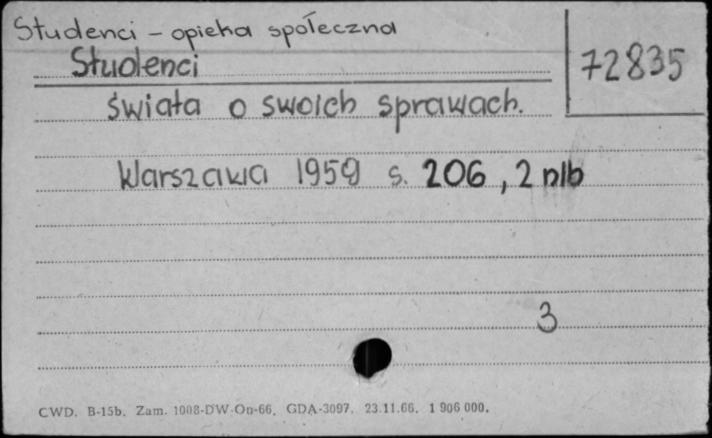 Studenci – opieka społeczna
Studenci
72835
świata o swoich sprawach.
Warszawa 1959 s. 206, 2 nlb
3
CWD. B-15b. Zam. 1008-DW-On-66. GDA-3097. 23.11.66. 1 906 000.